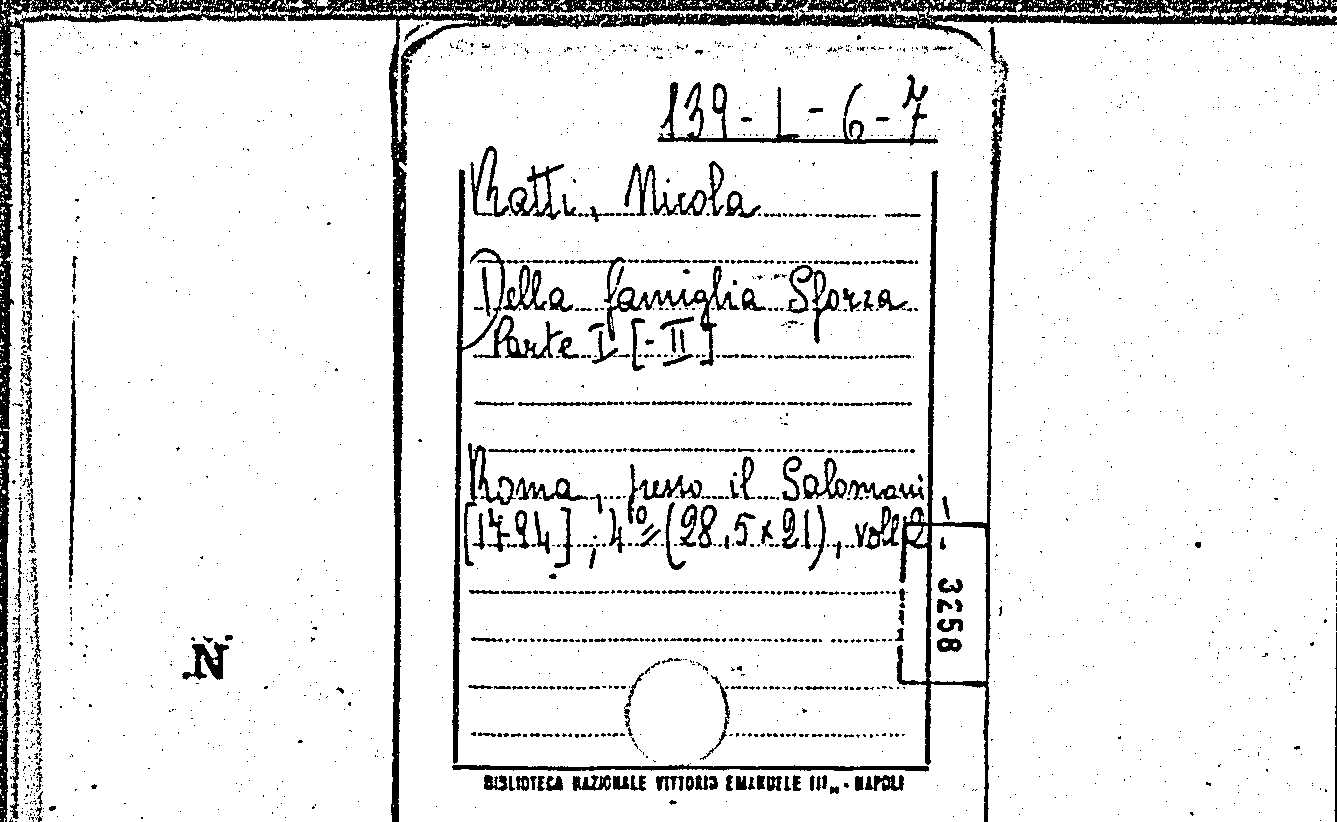 139-L-6-7
Ratti, Nicola
Della famiglia Sforza
Parte I [-II]
Roma, presso il Salomoni
[1794], 4° (28,5x21), voll 2.
3258
N
BIBLIOTECA NAZIONALE VITTORIO EMANUELE III - NAPOLI